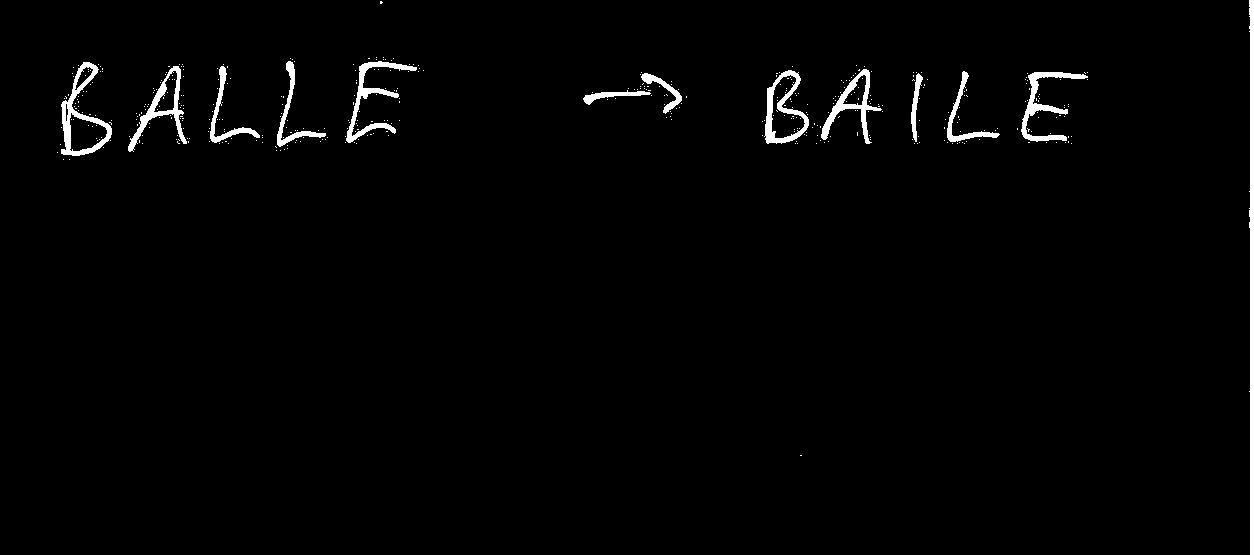 BALLE → BAILE